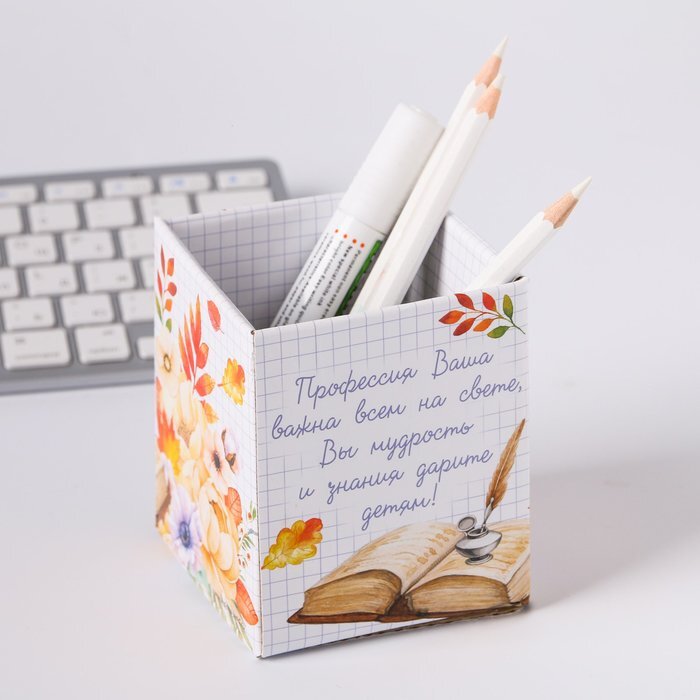 Профессия Ваша
важна всем на свете,
Вы мудрость
и знания дарите
детям!